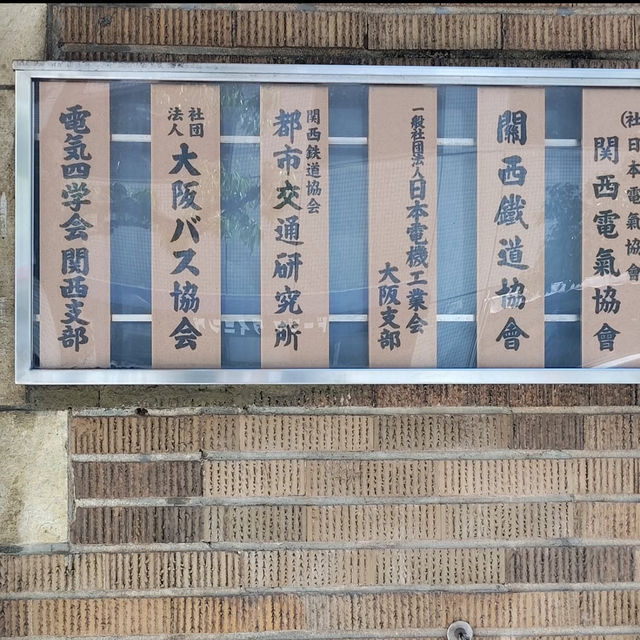 (社)日本電氣協會
関西電氣協會
關西鐵道協會
一般社団法人日本電機工業会
大阪支部
関西鉄道協会
都市交通研究所
社団法人
大阪バス協会
電気四学会関西支部